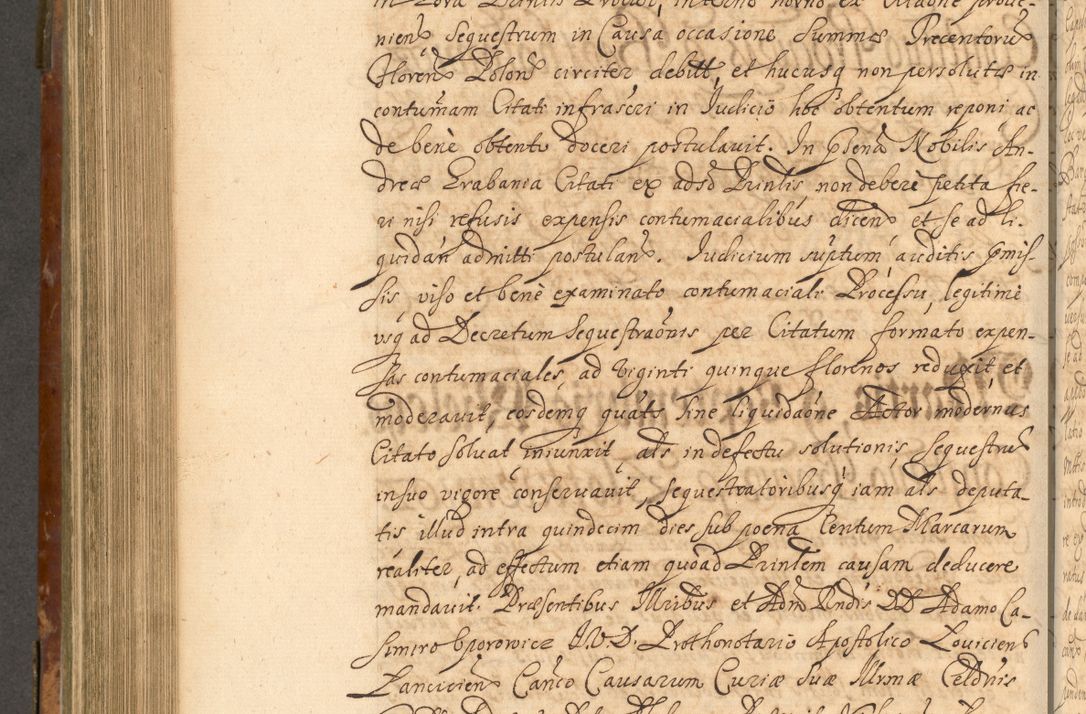 niens Sequestrum in Causa occasione Summæ Trecentorũ
Florens Polons circiter debitt, et hucusq non persolutæ in
contumam Citati infrascri in Judicio hoc obtentum reponi ac
de bene obtento doceri postulavit. In pñena Nobilis An-
dreæ Grabania Citati ex adso Prinlis non debere petita fie-
ri nisi refusis expensis contumacialibus dicens et se ad li-
quidan admitti postulans. Judicium suptum auditis pmis-
sis viso et bene examinato contumaciali Processu, legitime
usq ad Decretum Sequestraonis per Citatum formato expen-
sas contumaciales, ad viginti quinque florenos reduxit, et
moderavit, eosdemq quats sine liquidaone Actor modernus
Citato solvat iniunxit als in defectu solutionis, sequestrũ
in suo vigore conservavit, sequestratoribusq iam als deputa-
tis illud intra quindecim dies sub poena Centum Marcarum
realiter, ad effectum etiam quoad Prinlem causam deducere
mandavit. Præsentibus Illribus et Adm Rndis DD Adamo Ca-
simiro Oporowicz J.V.D. Prothonotario Apostolico Loviciens
Lanciciens Canco Causarum Curiæ Suæ Illrmæ Celdnis